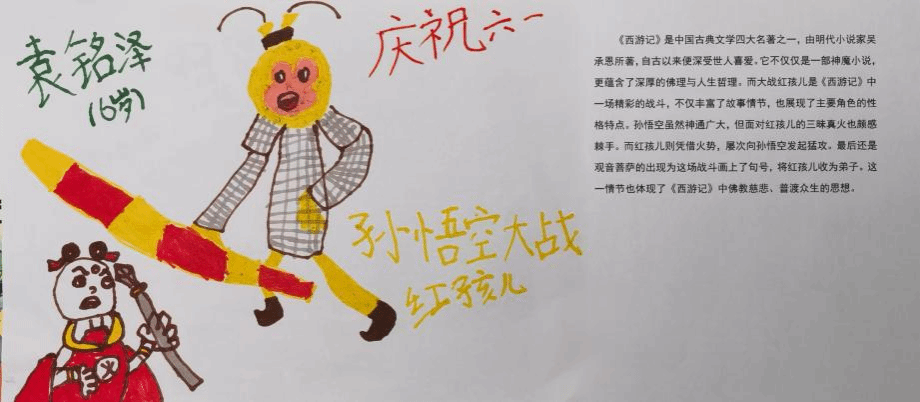 袁铭泽
(6岁)
庆祝六一
孙悟空大战
红孩儿
火
《西游记》是中国古典文学四大名著之一，由明代小说家吴
承恩所著，自古以来便深受世人喜爱。它不仅仅是一部神魔小说，
更蕴含了深厚的佛理与人生哲理。而大战红孩儿是《西游记》中
一场精彩的战斗，不仅丰富了故事情节，也展现了主要角色的性
格特点。孙悟空虽然神通广大，但面对红孩儿的三昧真火也颇感
棘手。而红孩儿则凭借火势，屡次向孙悟空发起猛攻。最后还是
观音菩萨的出现为这场战斗画上了句号，将红孩儿收为弟子。这
一情节也体现了《西游记》中佛教慈悲、普渡众生的思想。